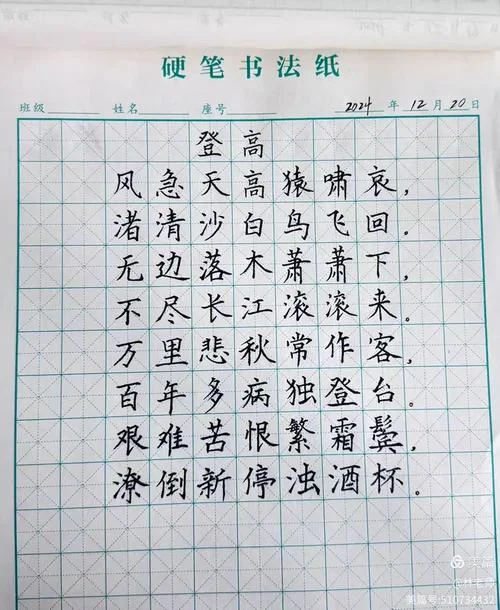 硬笔书法纸
班级 姓名 座号 2024 年 12 月 20 日
登高
风急天高猿啸哀，
渚清沙白鸟飞回。
无边落木萧萧下，
不尽长江滚滚来。
万里悲秋常作客，
百年多病独登台。
艰难苦恨繁霜鬓，
潦倒新停浊酒杯。
美篇
@林老师
美篇号:510734432